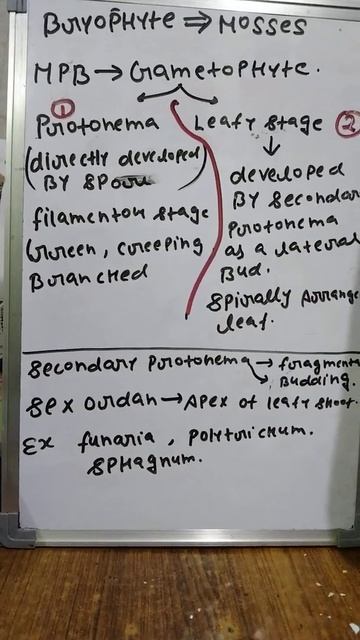 Bryophyte ⇒ Mosses
MPB → Gametophyte.
① Protonema
(directly developed
By Spore)
filamentou stage
Green, creeping
Branched
Leafy stage ②
↓
developed
By Secondar
Protonema
as a lateral
Bud.
Spirally Arrange
leaf.
Secondary Protonema → fragmenta
→ Budding.
Sex ordan → Apex of leafy shoot.
Ex funaria, Polytrichum.
Sphagnum.